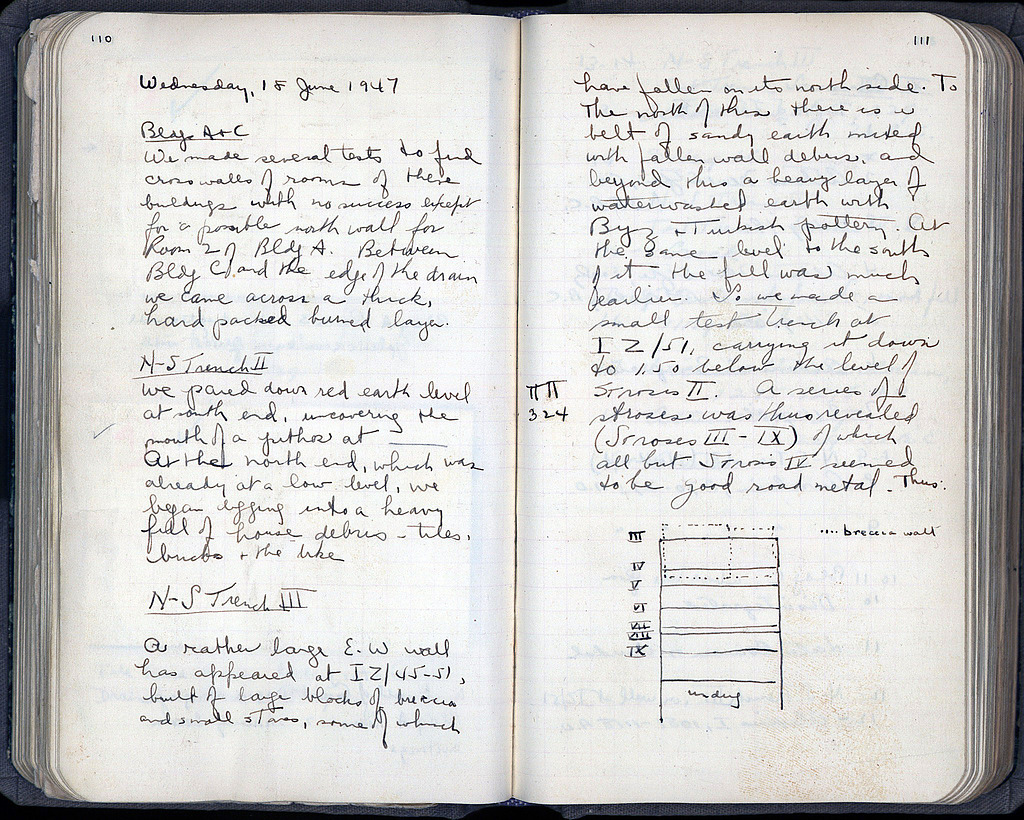 110
Wednesday, 18 June 1947
Bldgs A + C
We made several tests to find
cross walls of rooms of these
buildings with no success except
for a possible north wall for
Room 2 of Bldg A. Between
Bldg C and the edge of the drain
we came across a thick,
hard packed burned layer.
N-S Trench II
We pared down red earth level
at south end, uncovering the
mouth of a pithos at ____
At the north end, which was
already at a low level, we
began digging into a heavy
fill of house debris - tiles,
bricks + the like
N-S Trench III
A rather large E-W wall
has appeared at IZ/45-51,
built of large blocks of breccia
and small stones, some of which
111
have fallen on its north side. To
the north of this there is a
belt of sandy earth mixed
with fallen wall debris, and
beyond this a heavy layer of
waterwashed earth with
Byz + Turkish pottery. At
the same level to the south
of it the fill was much
earlier. So we made a
small test trench at
IZ/51, carrying it down
to 1.50 below the level of
Stroses II. A series of
ΠΠ
324
stroses was thus revealed
(Stroses III - IX) of which
all but Stroses IV seemed
to be good road metal. Thus:
III
.... breccia wall
IV
V
VI
VII
VIII
IX
undug